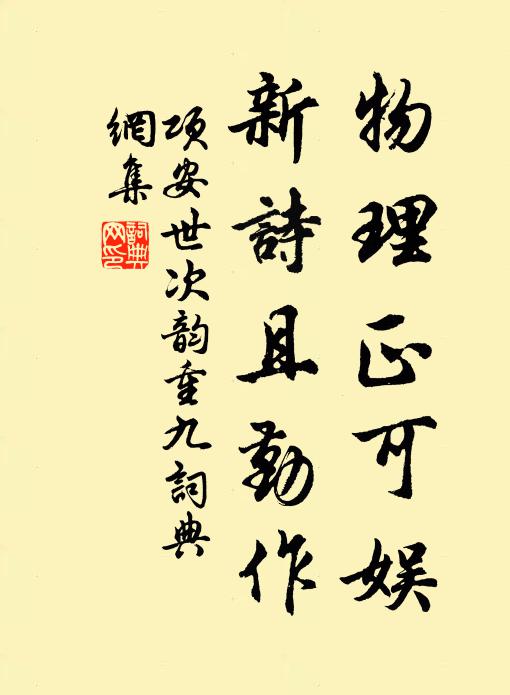 物理正可娱
新詩且勤作
项安世次韵重九詞典
網集
詞典
网印